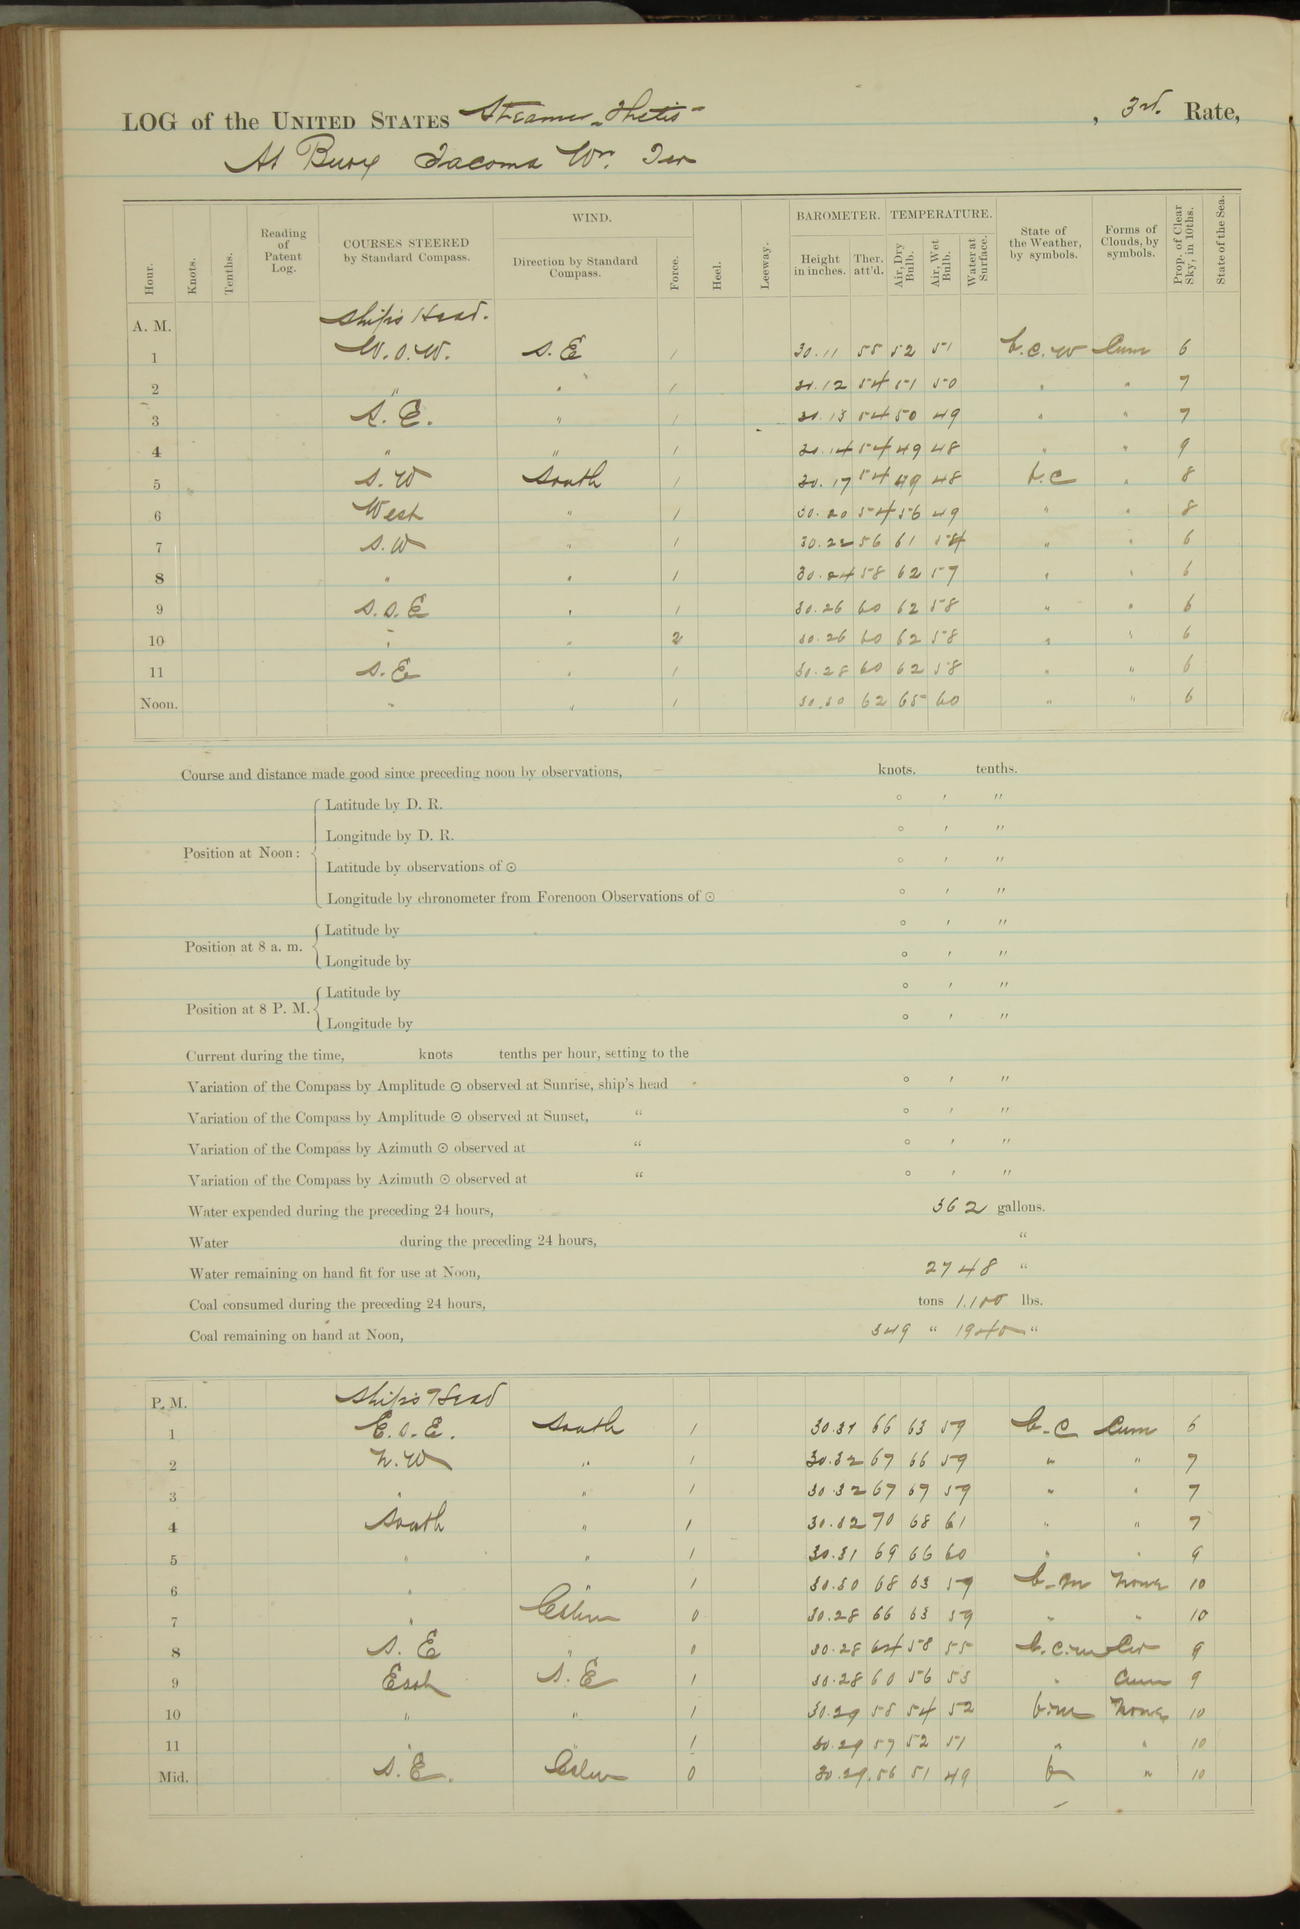 LOG of the UNITED STATES Steamer "Thetis" , 3rd. Rate,
At Buoy Tacoma Wn. Ter
Hour. Knots. Tenths. Reading of Patent Log. COURSES STEERED by Standard Compass. WIND. Direction by Standard Compass. Force. Heel. Leeway. BAROMETER. Height in inches. Ther. att'd. TEMPERATURE. Air, Dry Bulb. Air, Wet Bulb. Water at Surface. State of the Weather, by symbols. Forms of Clouds, by symbols. Prop. of Clear Sky, in 10ths. State of the Sea.
A. M. Ship's Head.
1 W.S.W. S.E 1 30.11 55 52 51 b.c.w Cum 6
2 " " 1 30.12 54 51 50 " " 7
3 S.E. " 1 30.13 54 50 49 " " 7
4 " " 1 30.14 54 49 48 " " 9
5 S.W South 1 30.17 54 49 48 b.c " 8
6 West " 1 30.20 54 56 49 " " 8
7 S.W " 1 30.22 56 61 54 " " 6
8 " " 1 30.24 58 62 57 " " 6
9 S.S.E " 1 30.26 60 62 58 " " 6
10 " " 2 30.26 60 62 58 " " 6
11 S.E " 1 30.28 60 62 58 " " 6
Noon. " " 1 30.30 62 65 60 " " 6
Course and distance made good since preceding noon by observations, knots. tenths.
Position at Noon:
Latitude by D. R. ° ′ ″
Longitude by D. R. ° ′ ″
Latitude by observations of ☉ ° ′ ″
Longitude by chronometer from Forenoon Observations of ☉ ° ′ ″
Position at 8 a. m.
Latitude by ° ′ ″
Longitude by ° ′ ″
Position at 8 P. M.
Latitude by ° ′ ″
Longitude by ° ′ ″
Current during the time, knots tenths per hour, setting to the
Variation of the Compass by Amplitude ☉ observed at Sunrise, ship's head ° ′ ″
Variation of the Compass by Amplitude ☉ observed at Sunset, " ° ′ ″
Variation of the Compass by Azimuth ☉ observed at " ° ′ ″
Variation of the Compass by Azimuth ☉ observed at " ° ′ ″
Water expended during the preceding 24 hours, 362 gallons.
Water during the preceding 24 hours, "
Water remaining on hand fit for use at Noon, 2748 "
Coal consumed during the preceding 24 hours, tons 1.100 lbs.
Coal remaining on hand at Noon, 349 " 1940 "
P. M. Ship's Head
1 E.S.E. South 1 30.31 66 63 59 b.c Cum 6
2 N.W " 1 30.32 67 66 59 " " 7
3 " " 1 30.32 67 67 59 " " 7
4 South " 1 30.32 70 68 61 " " 7
5 " " 1 30.31 69 66 60 " " 9
6 " " 1 30.30 68 63 59 b.m None 10
7 " Calm 0 30.28 66 63 59 " " 10
8 S.E " 0 30.28 64 58 55 b.c.m Cir 9
9 East S.E 1 30.28 60 56 53 " Cum 9
10 " " 1 30.29 58 54 52 b.m None 10
11 " " 1 30.29 57 52 51 " " 10
Mid. S.E. Calm 0 30.29 56 51 49 b " 10